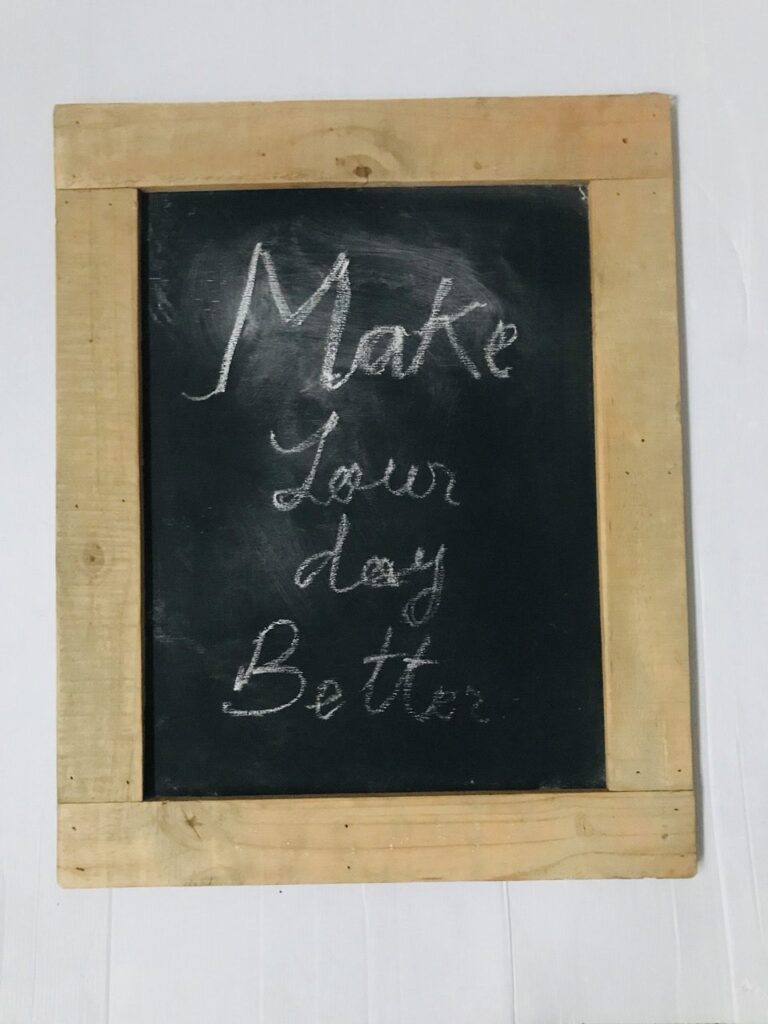 Make
Your
day
Better